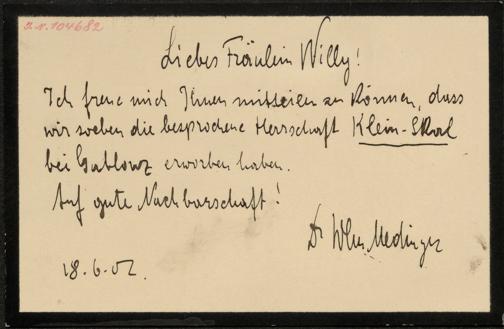 I.N.104682
Liebes Fräulein Willy!
Ich freue mich Ihnen mitteilen zu können, dass
wir soeben die besprochene Herrschaft Klein-Skal
bei Gablonz erworben haben.
Auf gute Nachbarschaft!
Dr Medinger
18.6.02.